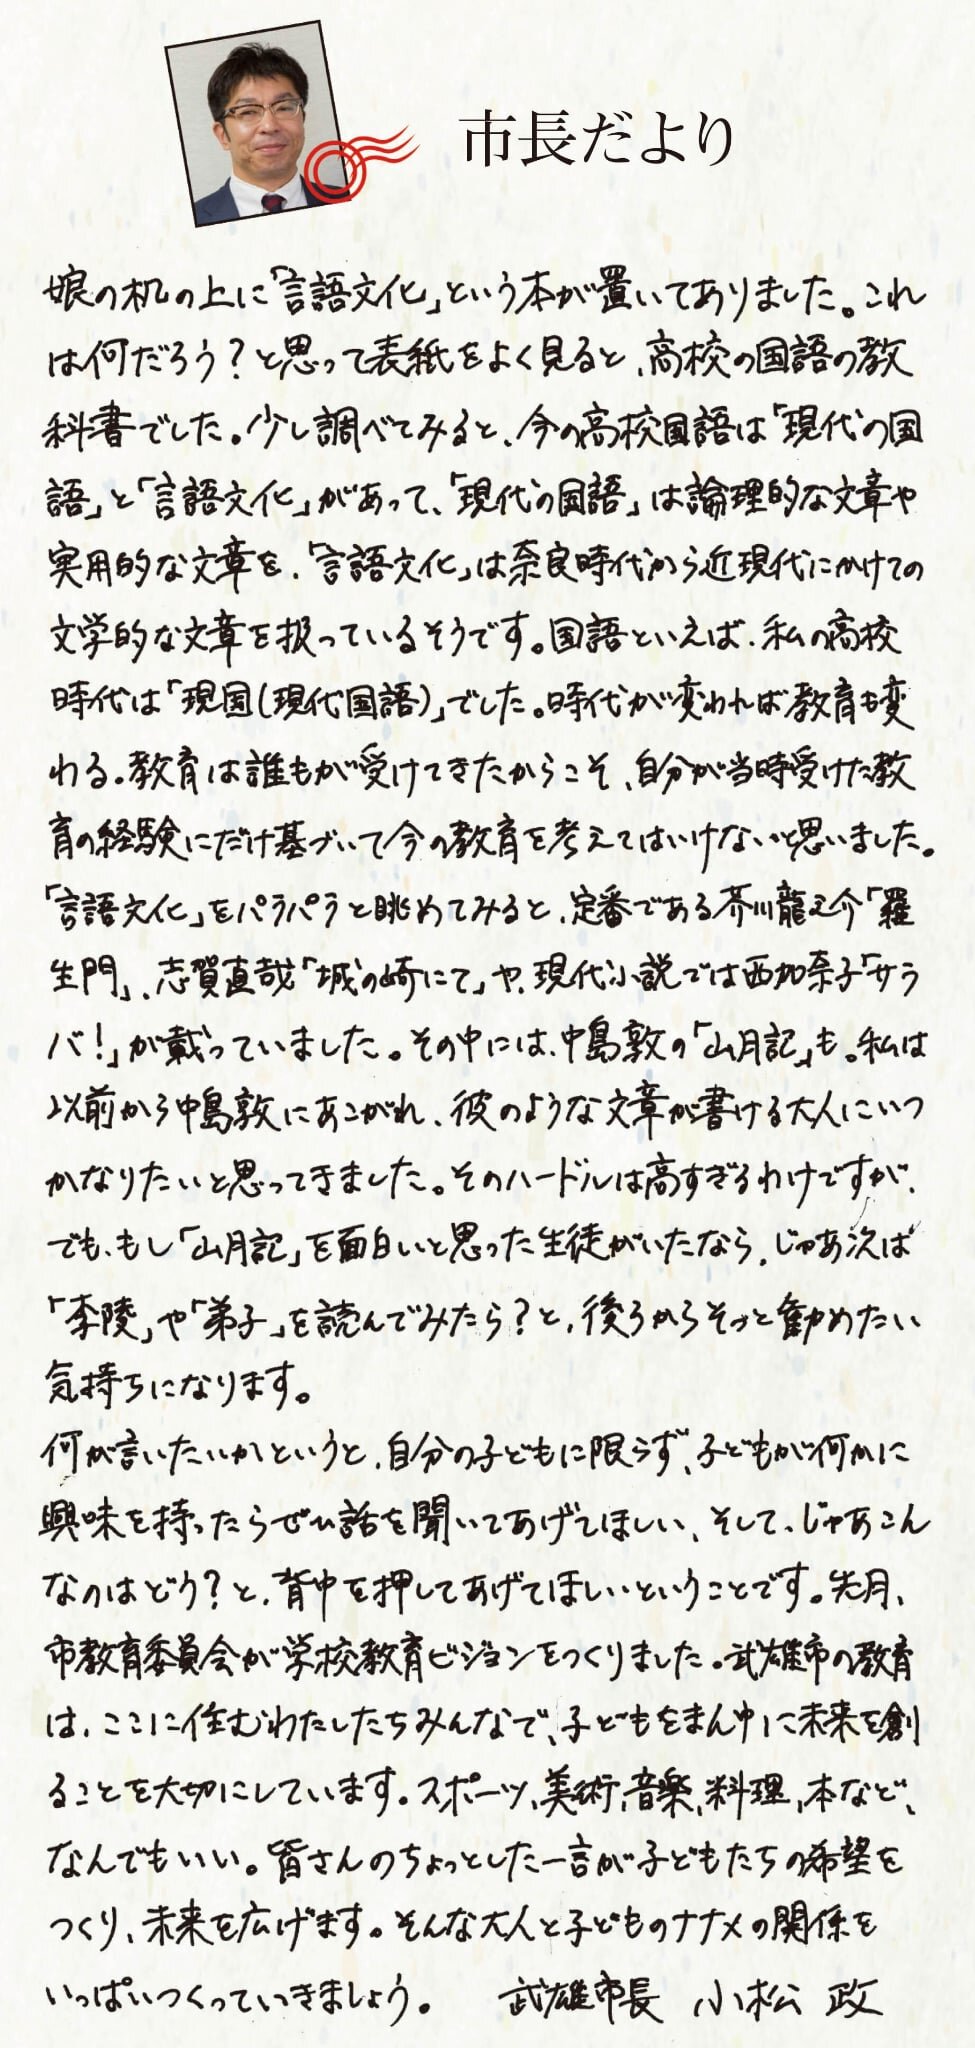 市長だより
娘の机の上に「言語文化」という本が置いてありました。これ
は何だろう？と思って表紙をよく見ると、高校の国語の教
科書でした。少し調べてみると、今の高校国語は「現代の国
語」と「言語文化」があって、「現代の国語」は論理的な文章や
実用的な文章を、「言語文化」は奈良時代から近現代にかけての
文学的な文章を扱っているそうです。国語といえば、私の高校
時代は「現国(現代国語)」でした。時代が変われば教育も変
わる。教育は誰もが受けてきたからこそ、自分が当時受けた教
育の経験にだけ基づいて今の教育を考えてはいけないと思いました。
「言語文化」をパラパラと眺めてみると、定番である芥川龍之介「羅
生門」、志賀直哉「城の崎にて」や、現代小説では西加奈子「サラ
バ！」が載っていました。その中には、中島敦の「山月記」も。私は
以前から中島敦にあこがれ、彼のような文章が書ける大人にいつ
かなりたいと思ってきました。そのハードルは高すぎるわけですが、
でも、もし「山月記」を面白いと思った生徒がいたなら、じゃあ次は
「李陵」や「弟子」を読んでみたら？と、後ろからそっと勧めたい
気持ちになります。
何が言いたいかというと、自分の子どもに限らず、子どもが何かに
興味を持ったらぜひ話を聞いてあげてほしい、そして、じゃあこん
なのはどう？と、背中を押してあげてほしいということです。先月、
市教育委員会が学校教育ビジョンをつくりました。武雄市の教育
は、ここに住むわたしたちみんなで、子どもをまん中に未来を創
ることを大切にしています。スポーツ、美術、音楽、料理、本など、
なんでもいい。皆さんのちょっとした一言が子どもたちの希望を
つくり、未来を広げます。そんな大人と子どものナナメの関係を
いっぱいつくっていきましょう。　武雄市長　小松 政